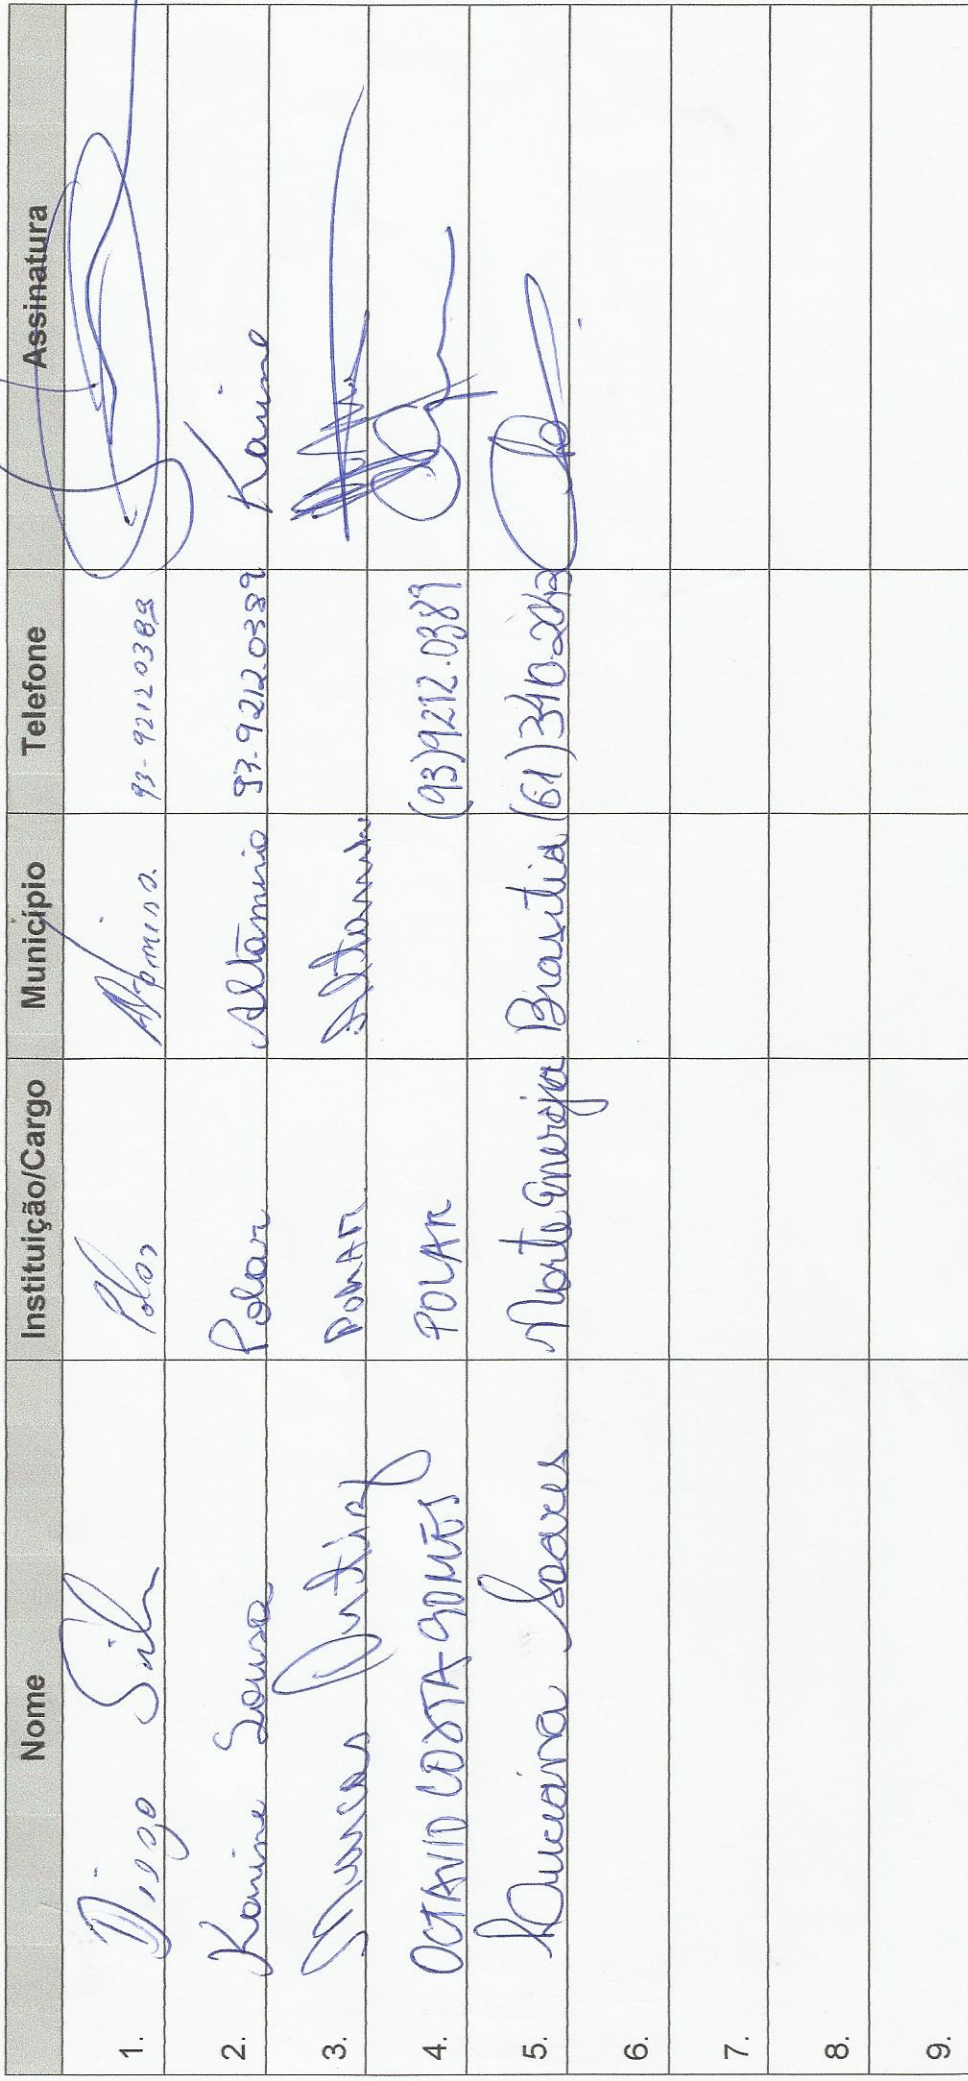 Nome Instituição/Cargo Município Telefone Assinatura
1. Diego Silva Polar Altamira. 93-92120389
2. Karine Sousa Polar Altamira 93-9212.0389 Karine
3. POLAR Altamira
4. OCTAVIO COSTA GOMES POLAR (93)9212.0389
5. Luciana Soares Norte Energia Brasília (61)3410-2042
6.
7.
8.
9.